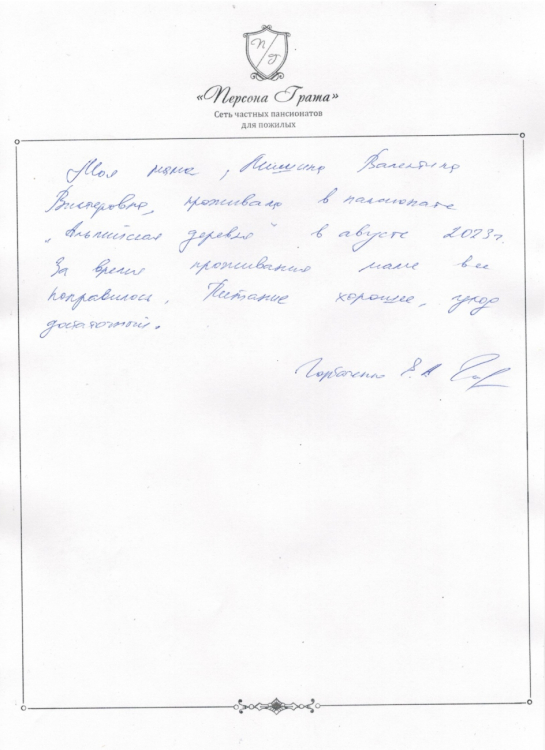 П
Г
«Персона Грата»
Сеть частных пансионатов
для пожилых
Моя мама, Валентина
Викторовна, проживала в пансионате
„Альпийская деревня" в августе 2023г.
За время проживания маме все
понравилось. Питание хорошее, уход
достаточный.